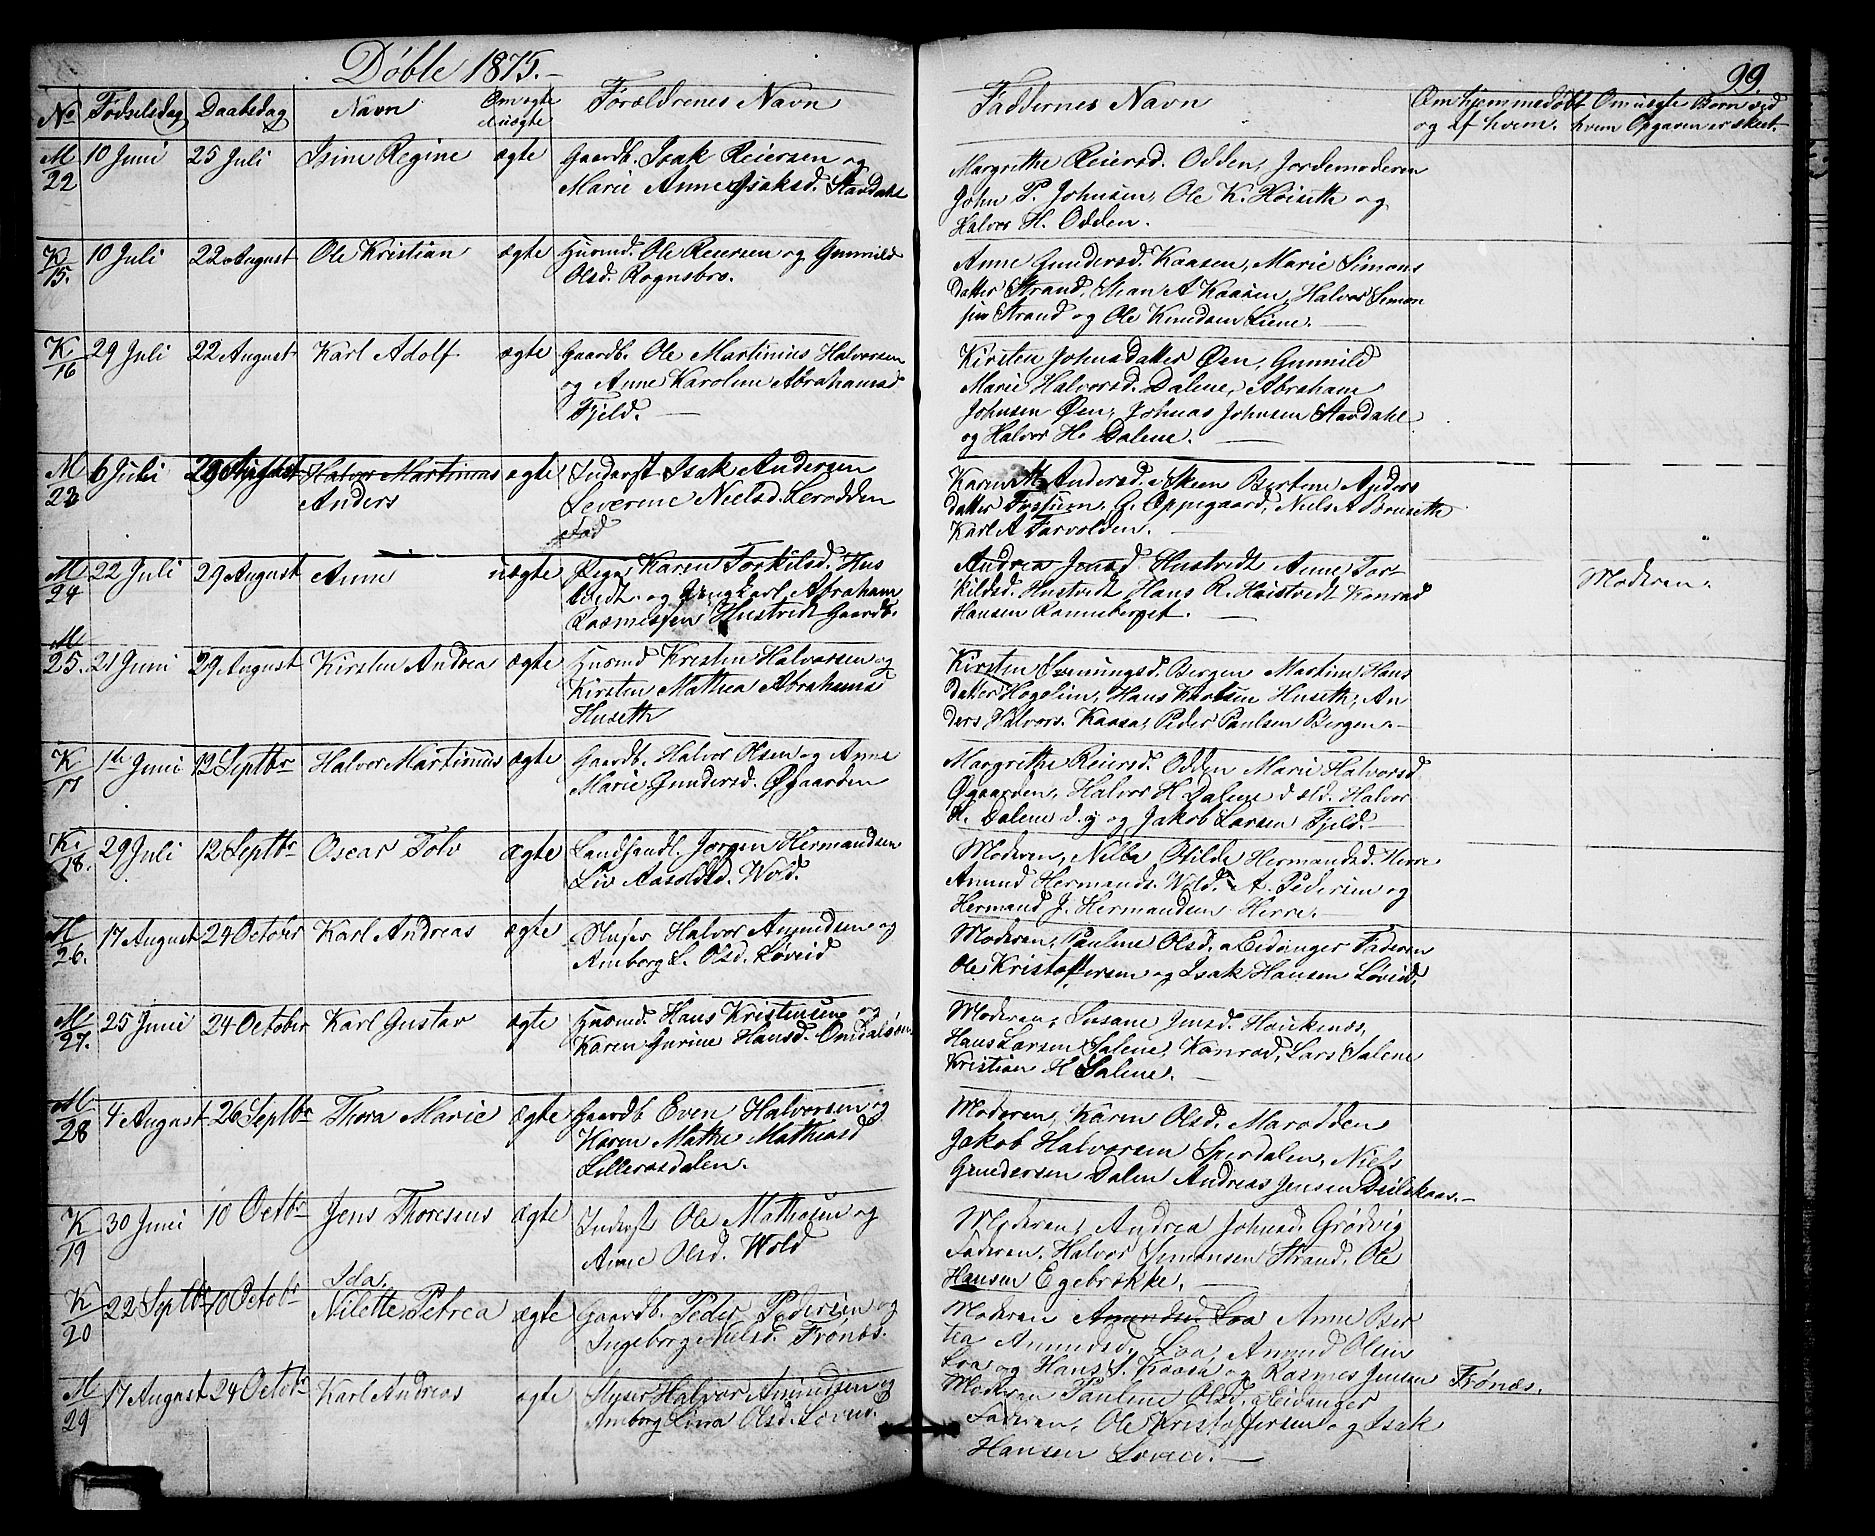 Døbte 1875.
99.
No Fødselsdag Daabsdag Navn Om ægte Uægte Forældrenes Navn Faddernes Navn Om hjemmedøbt og af hvem. Om uægte Børn ved hvem Opgaven er skeet.
M 22 10 Juni 25 Juli Regine ægte Gaardb. Isak Reiersen og
Marie Anne Isaksd. Stavdahl
Margrethe Reiersd. Odden, Jordemoderen
John P. Johnsen, Ole K. Høiseth og
Halvor H. Odden.
K 15. 10 Juli 22 August Ole Kristian ægte Husmd. Ole Reiersen og Gunnild
Olsd. Rognsbro.
Anne Gundersd. Kaasen, Marie Simons
datter Strand, A Kaasen, Halvor Simon
sen Strand og Ole Knudsen Liene.
K 16 29 Juli 22 August Karl Adolf ægte Gaardb. Ole Martinius Halvorsen
og Anne Karoline Abrahamsd
Fjeld.
Kirsten Johnsdatter Øen, Gunnild
Marie Halvorsd. Dalene, Abraham
Johnsen Øen, Johnas Johnsen Stavdahl
og Halvor H. Dalene.
M 23 6 Juli 29 August Halvor Martinus ægte Inderst Isak Andersen
Anders Severine Nielsd. Lerodden
Karen M. Andersd. Skeen Bertine Anders
datter Fossum, G. Oppegaard, Niels A Bruseth
Karl A Tarvolden.
M 24 22 Juli 29 August Anne uægte Pige Karen Torkilsd. Hus
tvedt og Ungkarl Abraham
Rasmussen Hustvedt Gaardb.
Andrea Jensd Hustvedt Anne Tor-
kildsd. Hustvedt Hans R. Høistvedt Konrad
Hansen Ranneberget.
Moderen.
M 25. 21 Juni 29 August Kirsten Andrea ægte Husmd Kristen Halvorsen og
Kirsten Mathea Abrahams
Huseth
Kirsten Svenningsd. Bergen Mastine Hans
datter Hogolien, Hans Karlsen Huseth, An
ders Halvors. Kaasa, Peder Paulsen Bergen.
K 17 1te Juni 12 Septbr Halvor Martinius ægte Gaardb. Halvor Olsen og Anne
Marie Gundersd. Øgaarden
Margrethe Reiersd. Odden Marie Halvorsd
Øgaarden, Halvor H Dalene d æld. Halvor
H. Dalene d. y og Jakob Larsen Fjeld.
K. 18. 29 Juli 12 Septbr Oscar Tolv ægte Landhandl. Jørgen Hermandsen
Liv Aasoldsd. Wold.
Moderen, Otilde Hermandsd. Herre
Amund Hermands. Wold, A. Pedersen og
Hermand J. Hermandsen Herre.
M 26. 17 August 24 October Karl Andreas ægte Sluser Halvor Amundsen og
Amborg L. Olsd. Løveid
Moderen, Pauline Olsd. Eidanger Faderen
Ole Kristoffersen og Isak Hansen Løveid.
M. 27. 25 Juni 24 October Karl Gustav ægte Husmd. Hans Kristensen og
Karen Gurine Hansd. Omdalsøen
Moderen, Susane Jensd. Haukenæs,
Hans Larsen Salene, Konrad, Lars Salene
Kristian H Salene.
M 28 4 August 26 Septbr Thora Marie ægte Gaardb Even Halvorsen og
Karen Mathe Mathiasd
Lilleraasdalen.
Moderen, Karen Olsd. Marodden
Jakob Halvorsen Sperdalen, Niels
Gundersen Dalen Andreas Jensen Dulskaas.
K 19 30 Juni 10 Octbr Jens Thoresius ægte Inderst Ole Mathisen og
Anne Olsd. Wold
Moderen, Andrea Johnsd. Grødvig
Faderen, Halvor Simonsen Strand, Ole
Hansen Egebrøkke.
K 20 22 Septbr 10 Octobr Ida. Nilette Petrea ægte Gaardb. Peder Pedersen og
Ingeborg Nielsd. Frönæs.
Moderen Amundsd. Loa Anne Ber
tea Amundsd. Loa, Amund Olsen
Loa og Hans S. Kaasa og Rasmus Jensen Frönæs.
M 29 17 August 24 Octobr Karl Andreas ægte Sluser Halvor Amundsen og
Amborg Lina Olsd. Løveid.
Moderen Pauline Olsd. Eidanger
Faderen, Ole Kristoffersen og Isak
Hansen Løveid.